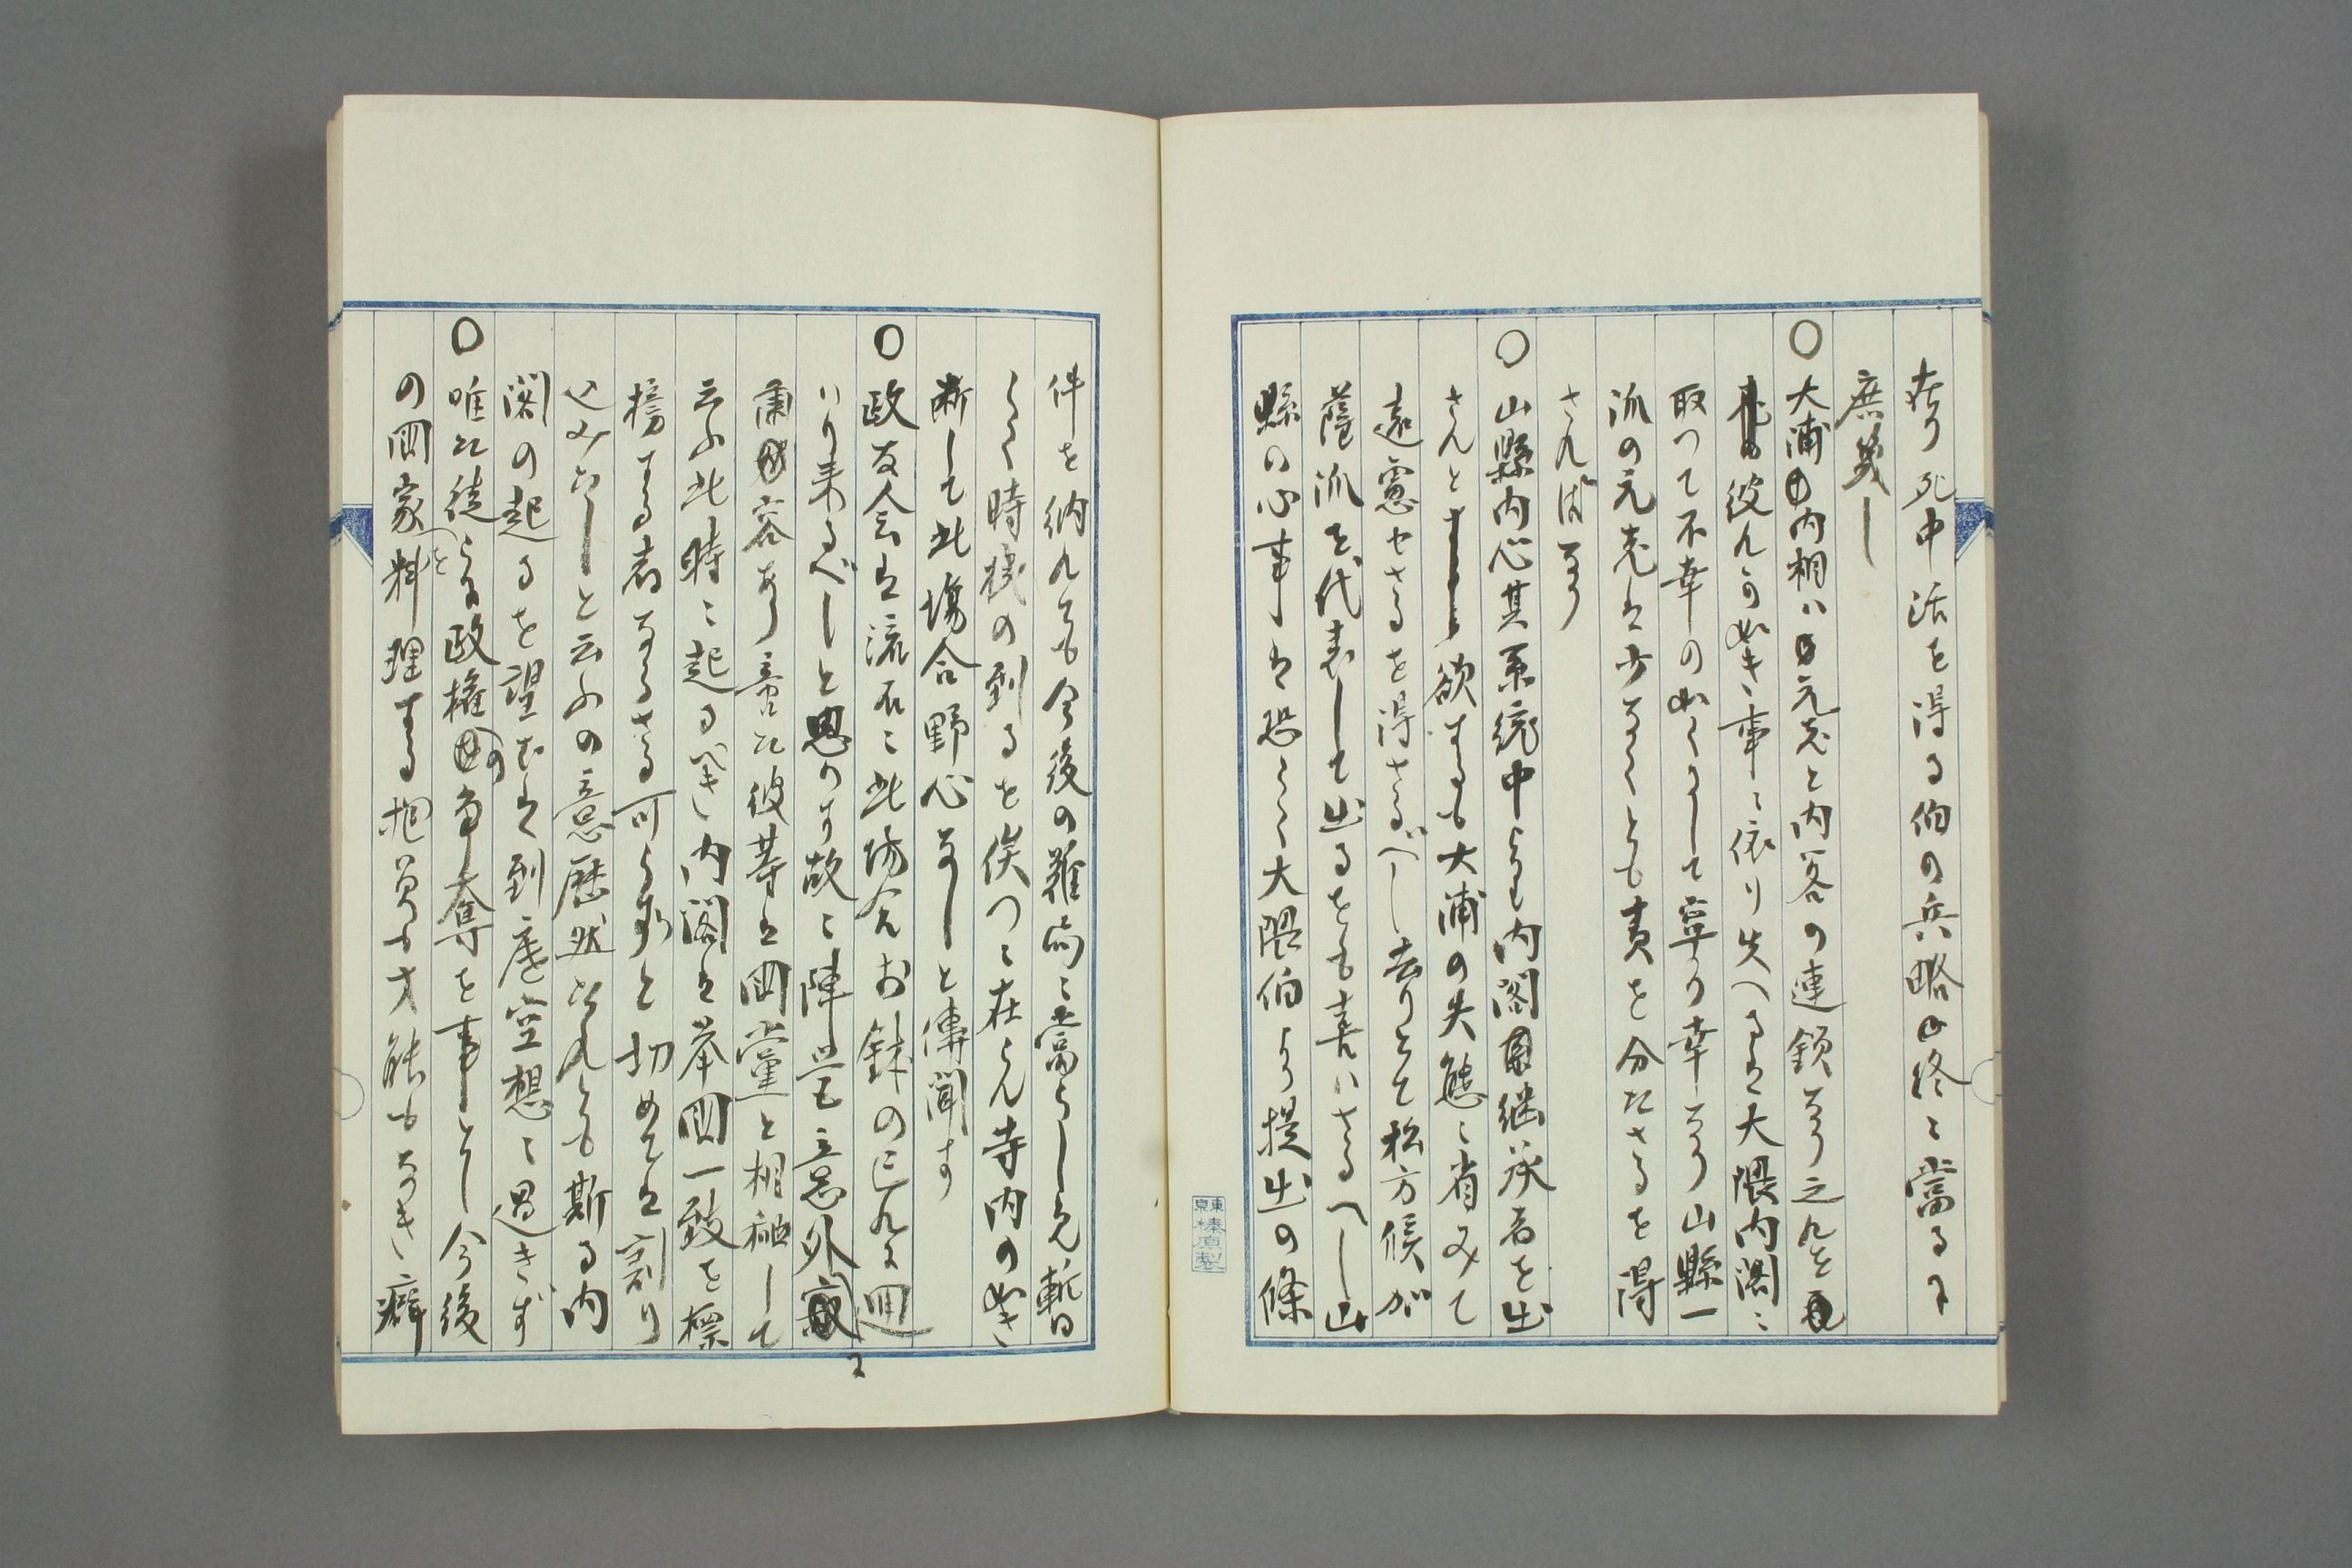 在り死中活を得る伯の兵略は終に當るに
庶幾し
〇大浦内相ハ元老と内閣の連鎖なり之れを
彼れの如き事に依り失へるは大隈内閣に
取つて不幸の如くにして寧ろ幸なり山縣一
派の元老は少なくとも責を分たさるを得
さればなり
〇山縣内心其系統中より内閣継承者を出
さんと欲するも大浦の失態に省みて
遠慮せさるを得さるべし去りとて松方侯が
薩派を代表して出るをも喜ハさるへし山
縣の心事は恐らく大隈伯より提出の條
件を納れても今後の難局に當らしめ暫く
時機の到るを俟つに在らん寺内の如き
断して此場合野心なしと傳聞す
〇政友会は流石に此場合お鉢の己れに廻
ハり来るべしと思ハす故に陣営意外に
粛容あり言に彼等は国党と相和して
云ふ此時に起るべき内閣は挙国一致を標
榜する者ならさる可らすと切めては割り
込みたしと云ふの意歴然たれとも斯る内
閣の起るを望むは到底空想に過きず
〇唯た徒らに政権の争奪を事とし今後
の国家を料理する抱負も才能もなき癖
東京榛原製